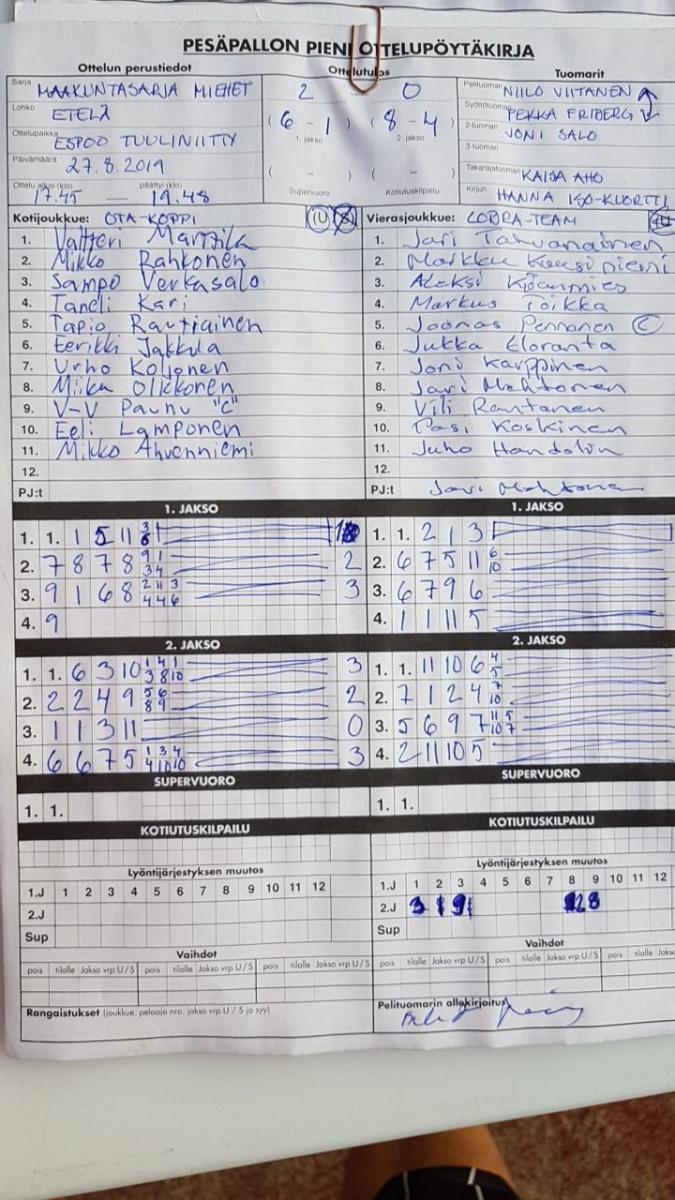 PESÄPALLON PIENI OTTELUPÖYTÄKIRJA
Ottelun perustiedot
Ottelutulos
Tuomarit
Sarja MAAKUNTASARJA MIEHET
2 0
Pelituomari NIILO VIITANEN
Lohko ETELÄ
(6 - 1) (8 - 4)
1. jakso 2. jakso
Syöttötuomari PEKKA FRIBERG
Ottelupaikka ESPOO TUULINIITTY
2-tuomari JONI SALO
3-tuomari
Päivämäärä 27.8.2019
( - ) ( - )
Takarajatuomari KAISA AHO
Ottelu alkoi (klo) 17.45 — päättyi (klo) 19.48
Supervuoro Kotiutuskilpailu
Kirjuri HANNA ISO-KUORTTI
Kotijoukkue: OTA-KOPPI
Vierasjoukkue: COBRA-TEAM
1. Valtteri
2. Mikko Rahkonen
3. Sampo Verkasalo
4. Taneli Kari
5. Tapio Rautiainen
6. Eerikki Jakkula
7. Urho Koljonen
8. Miika Olkkonen
9. V-V Paunu "C"
10. Eeli Lamponen
11. Mikko Ahvenniemi
12.
PJ:t
1. Jari Tahvanainen
2. Markku
3. Aleksi
4. Markus Toikka
5. Joonas Pennanen C
6. Jukka Eloranta
7. Joni Karppinen
8. Jari Mahtonen
9. Vili Rantanen
10. Pasi Koskinen
11. Juho Handolin
12.
PJ:t Jari Mahtonen
1. JAKSO
1. 1. 1 5 11 8
2. 7 8 7 8 9 1 3 4 2
3. 9 1 6 8 2 11 3 4 4 6 3
4. 9
1. JAKSO
1. 1. 2 1 3
2. 6 7 5 11 6 10
3. 6 7 9 6
4. 1 1 11 5
2. JAKSO
1. 1. 6 3 10 1 4 1 3 8 10 3
2. 2 2 4 9 5 6 8 9 2
3. 1 1 3 11 0
4. 6 6 7 5 1 3 4 4 10 10 3
2. JAKSO
1. 1. 11 10 6 4 5
2. 7 1 2 4 7 10
3. 5 6 9 7 11 5 10 7
4. 2 11 10 5
SUPERVUORO
1. 1.
SUPERVUORO
1. 1.
KOTIUTUSKILPAILU
KOTIUTUSKILPAILU
Lyöntijärjestyksen muutos
1.J 1 2 3 4 5 6 7 8 9 10 11 12
2.J
Sup
Lyöntijärjestyksen muutos
1.J 1 2 3 4 5 6 7 8 9 10 11 12
2.J 3 1 9
Sup
Vaihdot
pois tilalle Jakso vrp U/S pois tilalle Jakso vrp U/S pois tilalle Jakso vrp U/S
Vaihdot
pois tilalle Jakso vrp U/S pois tilalle Jakso vrp U/S pois tilalle Jakso vrp U/S
Rangaistukset (joukkue, pelaaja nro. jakso vrp U / S ja syy)
Pelituomarin allekirjoitus